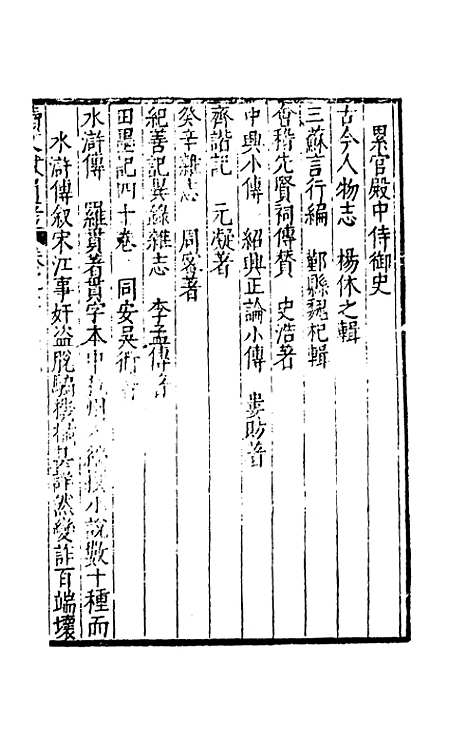 累官殿中侍御史
古今人物志 楊休之輯
三蘇言行編 鄞縣魏杞輯
會稽先賢祠傳贊 史浩著
中興小傳 紹興正論小傳 婁昉著
齊諧記 元凝著
癸辛雜志 周密著
紀善記異錄雜志 李孟傳
田墨記四十卷 同安吳術
水滸傳 羅貫著貫字本中 州 小說數十種而
水滸傳叙宋江事奸盜脫騙機械甚詳然變詐百端壞